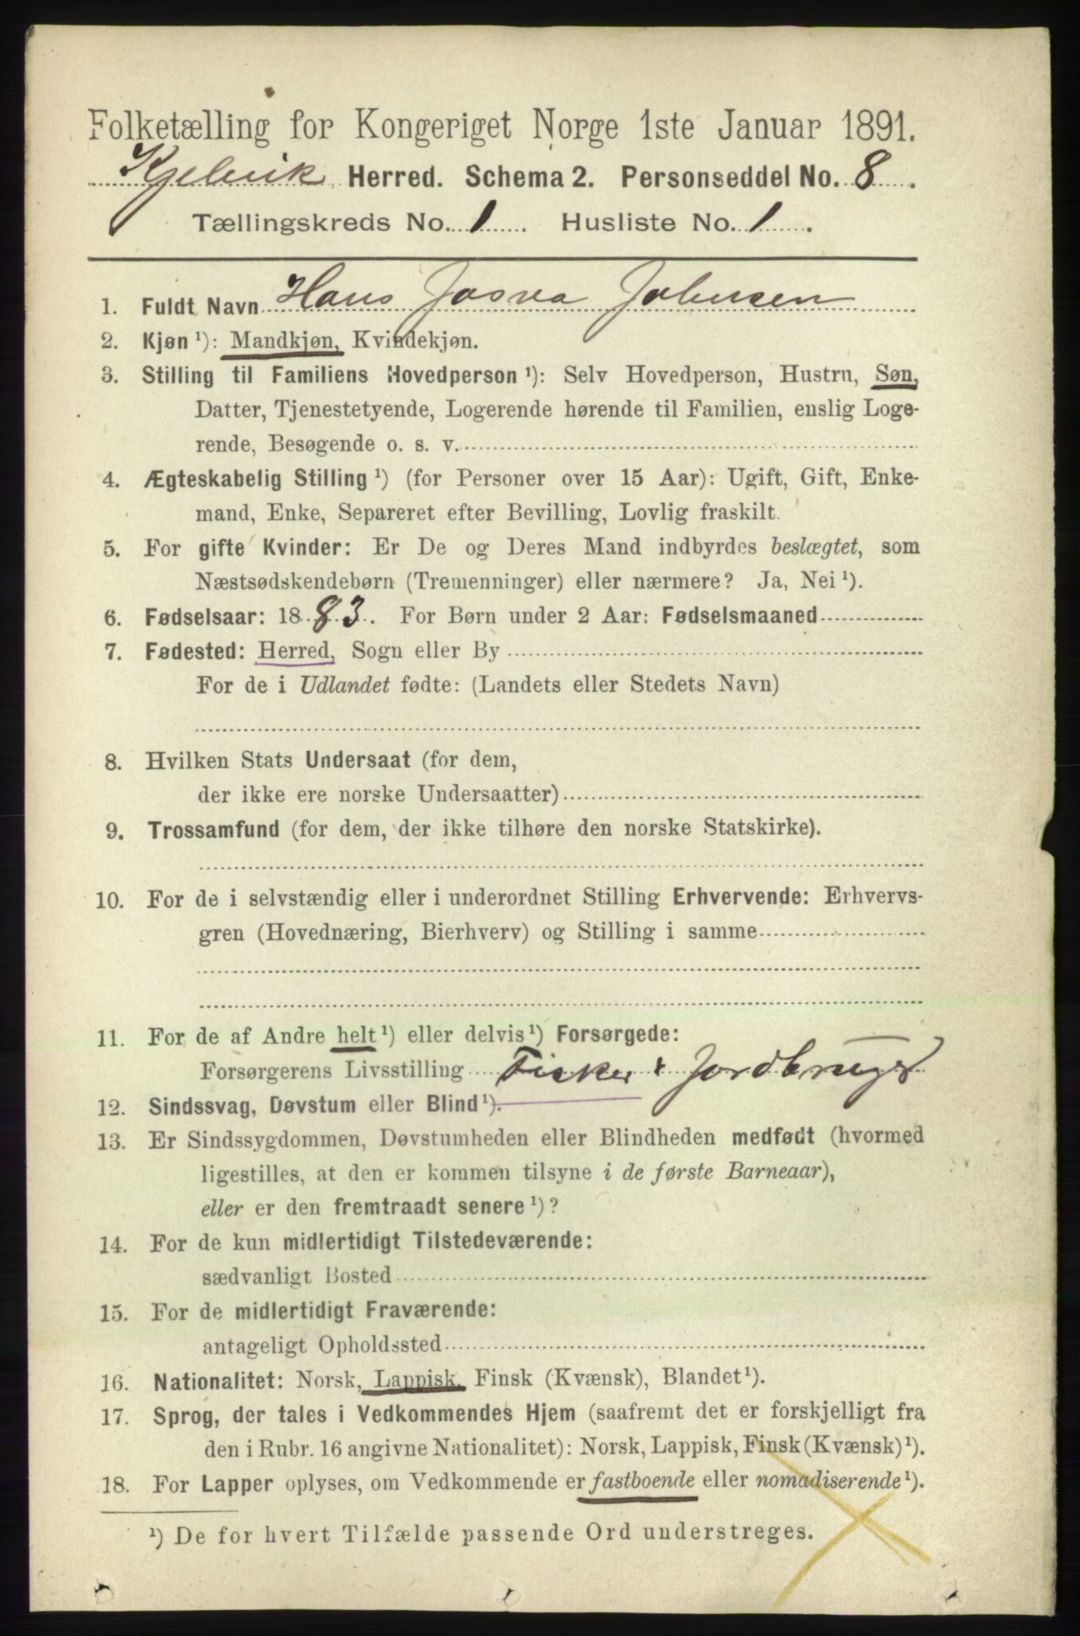 Folketælling for Kongeriget Norge 1ste Januar 1891.
Kjelvik Herred. Schema 2. Personseddel No. 8.
Tællingskreds No. 1. Husliste No. 1.
1. Fuldt Navn Hans Josva Johnsen
2. Kjøn ¹): Mandkjøn, Kvindekjøn.
3. Stilling til Familiens Hovedperson ¹): Selv Hovedperson, Hustru, Søn,
Datter, Tjenestetyende, Logerende hørende til Familien, enslig Loge-
rende, Besøgende o. s. v.
4. Ægteskabelig Stilling ¹) (for Personer over 15 Aar): Ugift, Gift, Enke-
mand, Enke, Separeret efter Bevilling, Lovlig fraskilt.
5. For gifte Kvinder: Er De og Deres Mand indbyrdes beslægtet, som
Næstsødskendebørn (Tremenninger) eller nærmere? Ja, Nei ¹).
6. Fødselsaar: 1883. For Børn under 2 Aar: Fødselsmaaned
7. Fødested: Herred, Sogn eller By
For de i Udlandet fødte: (Landets eller Stedets Navn)
8. Hvilken Stats Undersaat (for dem,
der ikke ere norske Undersaatter)
9. Trossamfund (for dem, der ikke tilhøre den norske Statskirke).
10. For de i selvstændig eller i underordnet Stilling Erhvervende: Erhvervs-
gren (Hovednæring, Bierhverv) og Stilling i samme
11. For de af Andre helt ¹) eller delvis ¹) Forsørgede:
Forsørgerens Livsstilling Fisker & Jordbruger
12. Sindssvag, Døvstum eller Blind ¹).
13. Er Sindssygdommen, Døvstumheden eller Blindheden medfødt (hvormed
ligestilles, at den er kommen tilsyne i de første Barneaar),
eller er den fremtraadt senere ¹)?
14. For de kun midlertidigt Tilstedeværende:
sædvanligt Bosted
15. For de midlertidigt Fraværende:
antageligt Opholdssted
16. Nationalitet: Norsk, Lappisk, Finsk (Kvænsk), Blandet ¹).
17. Sprog, der tales i Vedkommendes Hjem (saafremt det er forskjelligt fra
den i Rubr. 16 angivne Nationalitet): Norsk, Lappisk, Finsk (Kvænsk) ¹).
18. For Lapper oplyses, om Vedkommende er fastboende eller nomadiserende ¹).
¹) De for hvert Tilfælde passende Ord understreges.